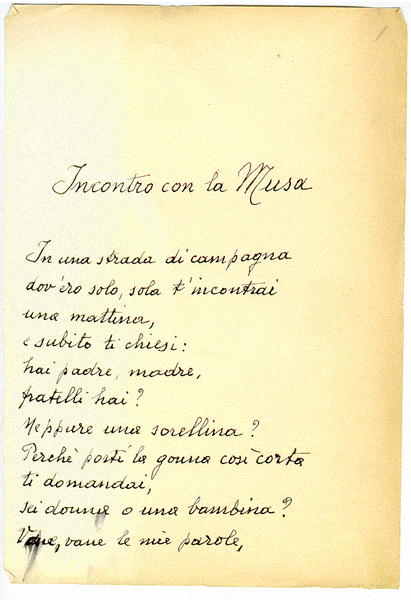 Incontro con la Musa
In una strada di campagna
dov'ero solo, sola t'incontrai
una mattina,
e subito ti chiesi:
hai padre, madre,
fratelli hai?
Neppure una sorellina?
Perchè porti la gonna così corta
ti domandai,
sei donna o una bambina?
Vane, vane le mie parole,